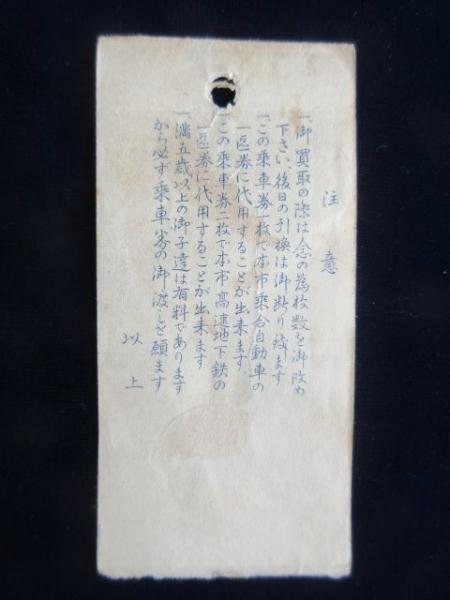 注意
一、御買取の際は念の為枚数を御改め
下さい、後日の引換は御断り致ます
一、この乗車券一枚で本市乗合自動車の
一区券に代用することが出来ます
一、この乗車券二枚で本市高速地下鉄の
一区券に代用することが出来ます
一、満五歳以上の御子達は有料であります
から必ず乗車券の御渡しを願ます
以上